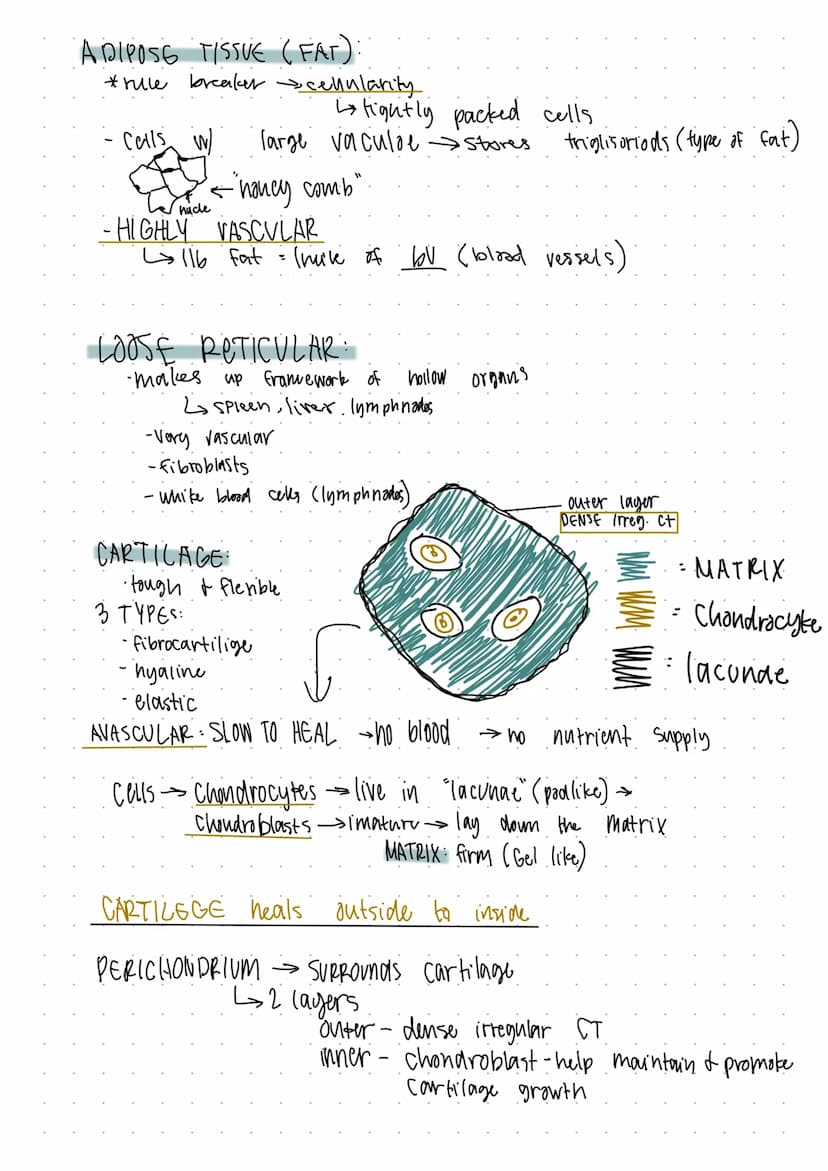 ADIPOSE TISSUE (FAT):
*rule breaker → cellularity
↳ tightly packed cells
- Cells w/ large vaculoe → stores trigliseriods (type of fat)
← "honey comb"
nucle
- HIGHLY VASCULAR
↳ 1lb fat = 1mile of bV (blood vessels)
LOOSE RETICULAR:
·makes up framework of hollow organs
↳ spleen, liver, lymphnodes
-Very vascular
-fibroblasts
- white blood cells (lymphnodes)
outer layer
DENSE irreg. CT
CARTILAGE:
·tough & flexible
3 TYPES:
·fibrocartilige
- hyaline
- elastic
= MATRIX
= Chondrocyte
= lacunae
AVASCULAR: SLOW TO HEAL → no blood → no nutrient supply
Cells → Chondrocytes → live in "lacunae" (podlike) →
Chondroblasts → imature → lay down the matrix
MATRIX: firm (Gel like)
CARTILEGE heals outside to inside
PERICHONDRIUM → SURROUNDS cartilage
↳ 2 layers
outer - dense irregular CT
inner - chondroblast - help maintain & promote
cartilage growth